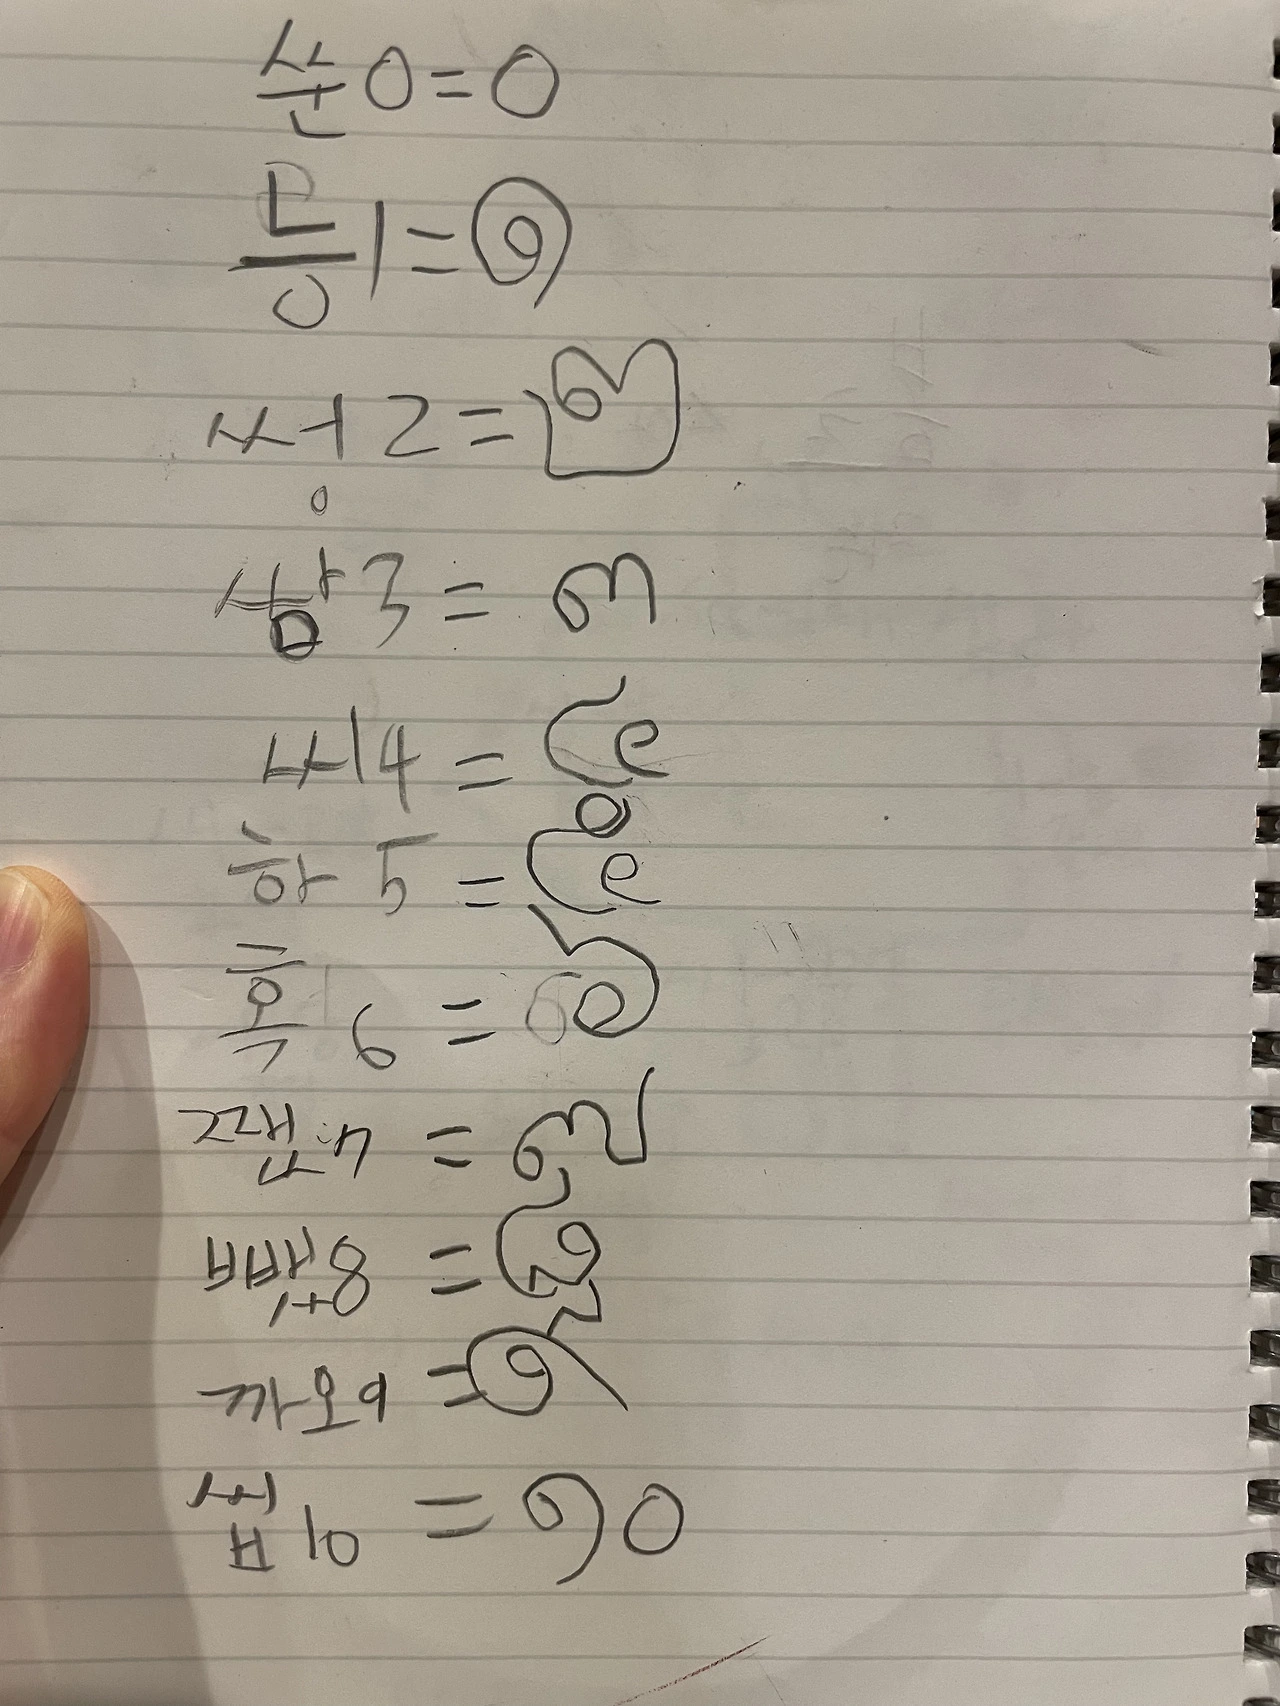 쑨 0 = ๐
능 1 = ๑
썽 2 = ๒
쌈 3 = ๓
씨 4 = ๔
하 5 = ๕
혹 6 = ๖
쨋 7 = ๗
뺏 8 = ๘
까오 9 = ๙
씹 10 = ๑๐